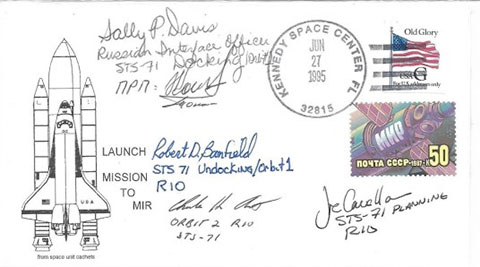 Sally P. Davis
Russian Interface Officer
STS-71 Docking
ПРП:
KENNEDY SPACE CENTER FL
JUN
27
1995
32815
Old Glory
USA G
For U.S. addresses only
МИР
ПОЧТА СССР • 1987 • К 50
LAUNCH
MISSION
TO
MIR
USA
from space unit cachets
Robert D. Banfield
STS 71 Undocking/Orbit 1
RIO
ORBIT 2 RIO
STS-71
STS-71 PLANNING
RIO